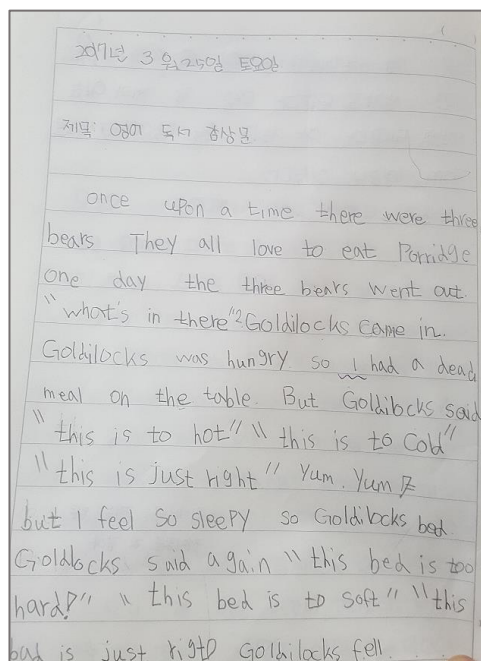 2017년 3월 25일 토요일
제목: 영어 독서 감상문
once upon a time there were three
bears They all love to eat Porridge
one day the three bears went out.
"what's in there"? Goldilocks came in.
Goldilocks was hungry. so I had a dead
meal on the table. But Goldilocks said
"this is to hot" "this is to cold"
"this is just right" Yum. Yum
but I feel so sleepy so Goldilocks bed.
Goldlocks said again "this bed is too
hard!" "this bed is to soft" "this
bad is just right Goldilocks fell.